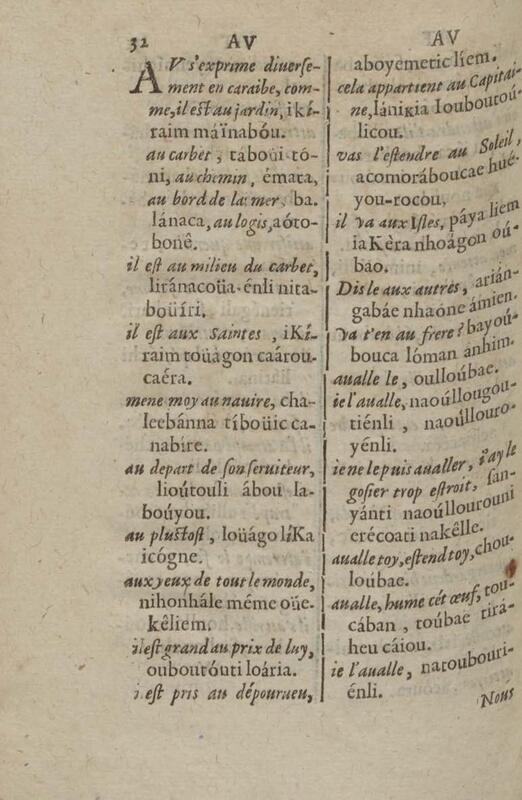 32 AV AV
AV s'exprime diuerse-
ment en caraibe, com-
me, il est au jardin, i kí-
raim máïnabóu.
au carbet, táboüi-tó-
ni, au chemin, émata,
au bord de la mer, ba-
lánaca, au logis, aóto-
bonê.
il est au milieu du carbet,
liránacoüa-énli nita-
boüíri.
il est aux Saintes, iKí-
raim toüágon caárou-
caéra.
mene moy au nauire, cha-
leebánna tíboüic ca-
nabire.
au depart de son seruiteur,
lioútouli ábou la-
boúyou.
au plustost, loüágo líKa
icógne.
aux yeux de tout le monde,
nihonhále méme oüe-
kêliem.
il est grand au prix de luy,
ouboutóuti loária.
i est pris au dépourueu,
aboyemetic líem.
cela appartient au Capitai-
ne, lánikia Iouboutoú-
licou.
vas l'estendre au Soleil,
acomoráboucae hué-
you-rocou,
il va aux Isles, páya liem
iaKèra nhoágon oú-
bao.
Dis le aux autres, arián-
gabáe nhaóne ámien.
Va t'en au frere? bayou-
bouca lóman anhim.
aualle le, oulloúbae.
ie l'aualle, naoúllougou-
tiénli, naoúllouro-
yénli.
ie ne le puis aualler, i'ay le
gosier trop estroit, san-
yánti naoúllourouni
erécoati nakêlle.
aualle toy, estend toy, chou-
loúbae.
aualle, hume cét œuf, tou-
cában, toúbae tirá-
heu cáiou.
ie l'aualle, natoubouri-
énli.
Nous